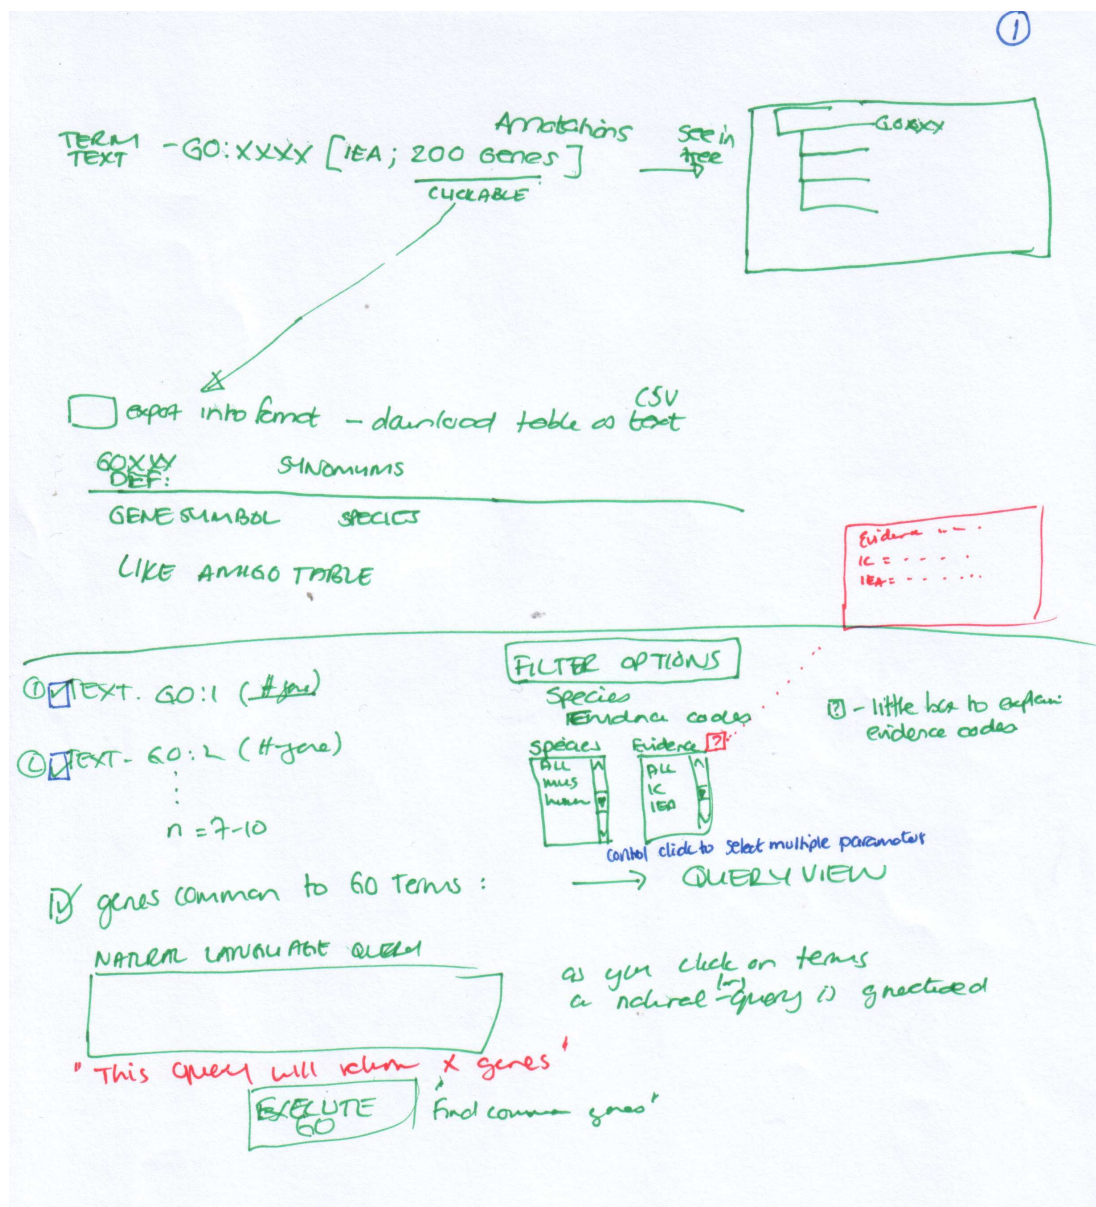 1
Annotations
TERM
TEXT
- GO:XXXX [IEA; 200 Genes]
CLICKABLE
see in
tree
export into format - download table as text
CSV
GOXXX
DEF:
SYNOMUMS
GENE SYMBOL SPECIES
LIKE AMIGO TABLE
Evidence
IC =
IEA =
1 TEXT. GO:1 (# gene)
2 TEXT - GO:2 (# gene)
n = 7-10
FILTER OPTIONS
Species
Evidence codes
Species
ALL
mus
human
Evidence ?
ALL
IC
IEA
? - little box to explain
evidence codes
control click to select multiple parameter
genes common to GO Terms :
QUERY VIEW
NATURAL LANGUAGE QUERY
as you click on terms
a natural query is
"This query will return X genes"
EXECUTE
GO
"find common genes"